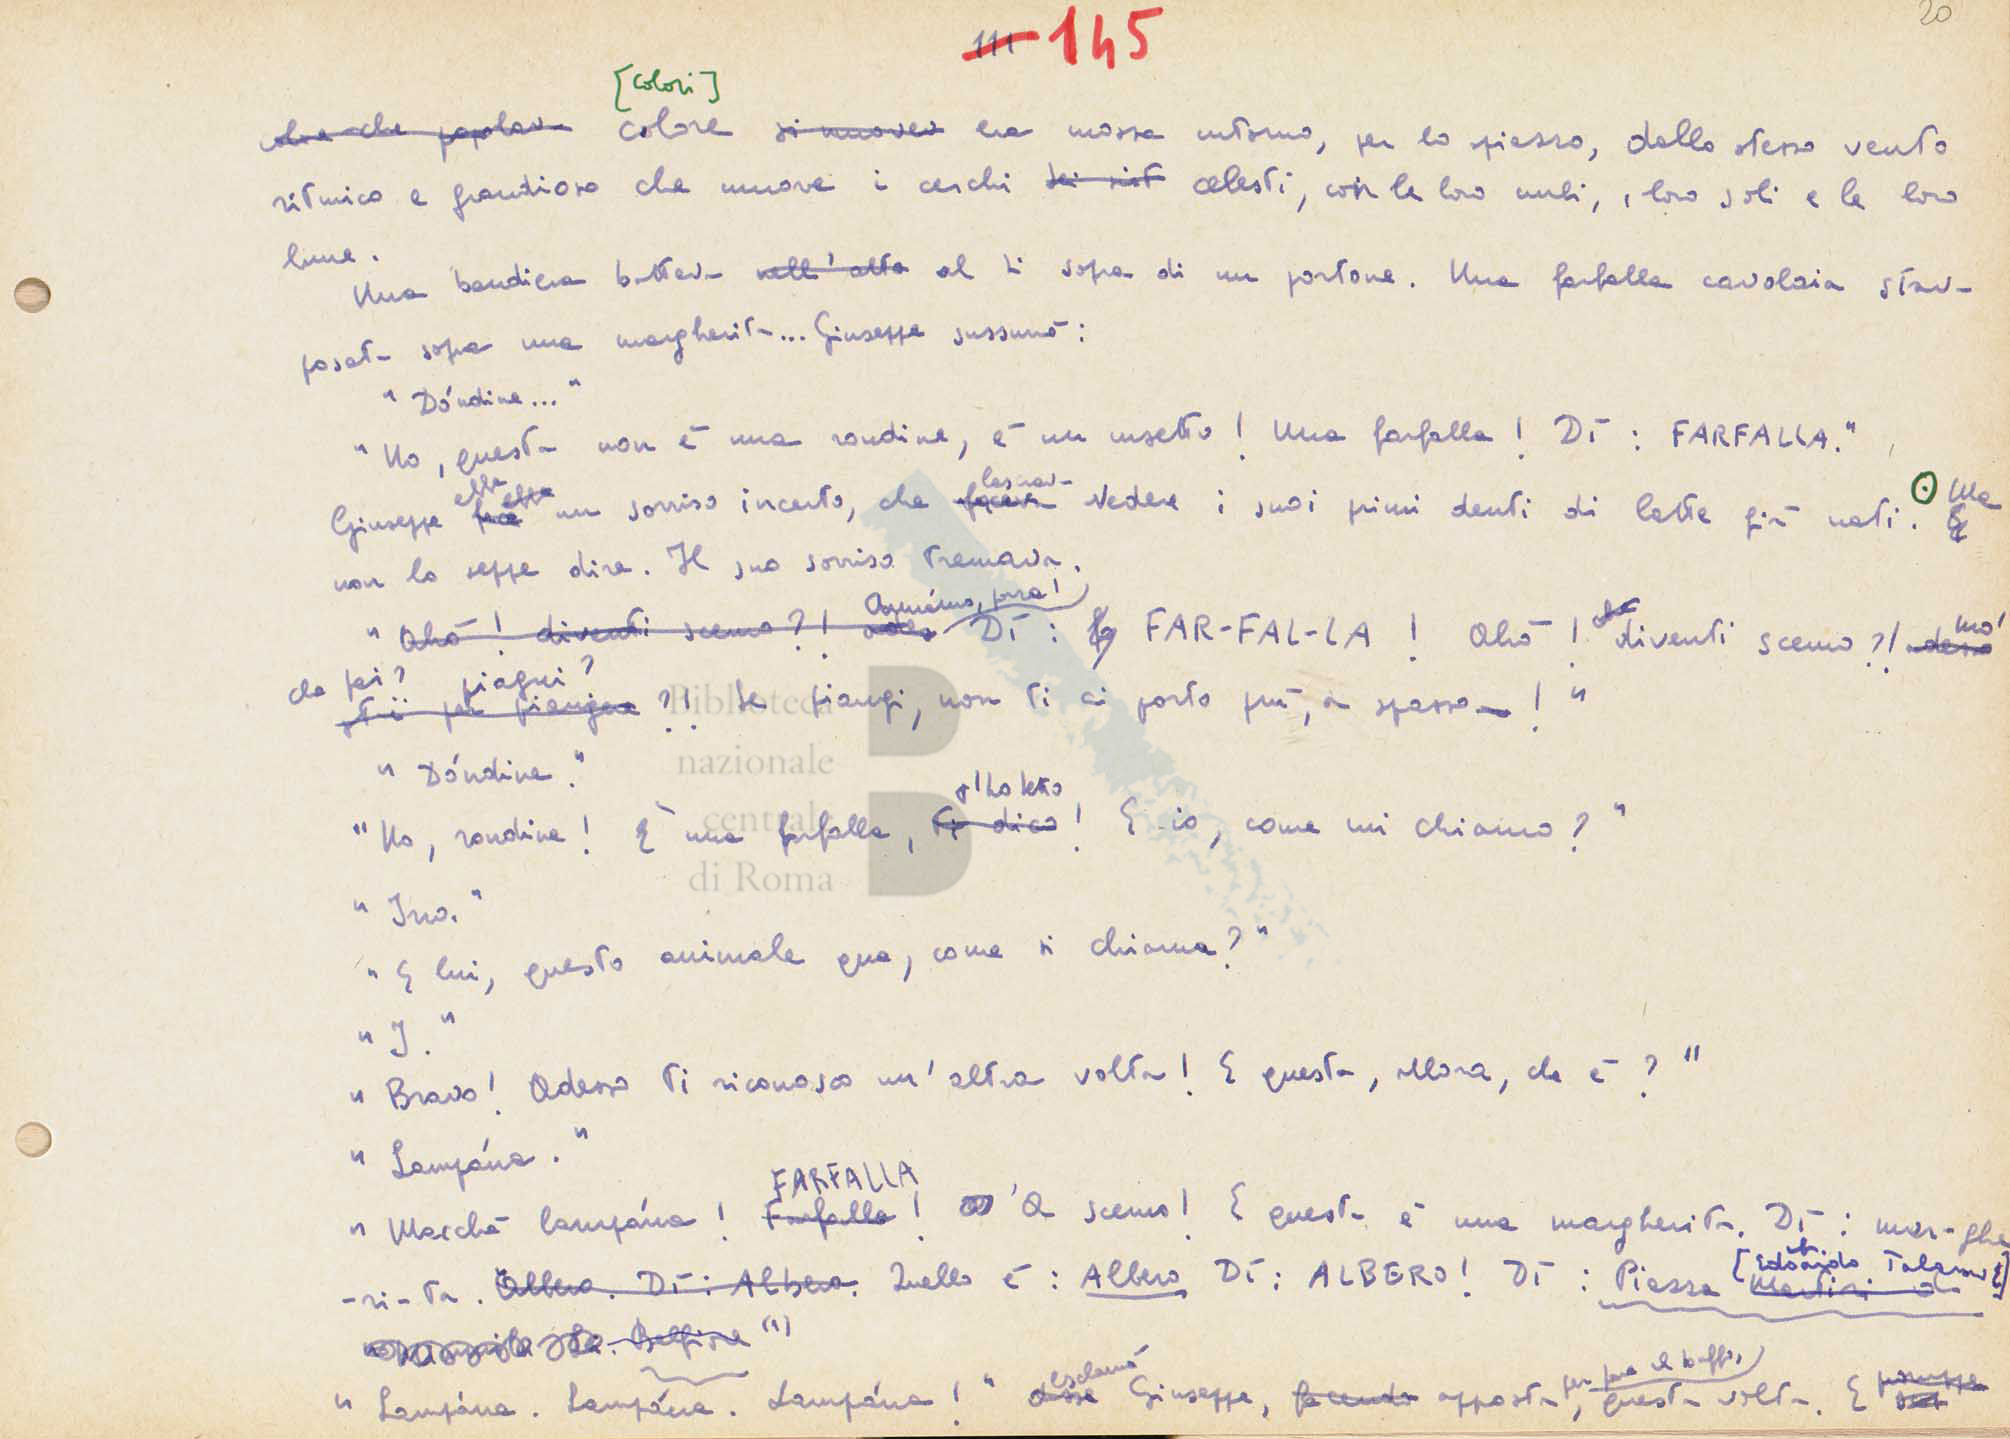 20
111 145
[colori]
che popolav colore si muovev era mossa intorno, per lo spiazzo, dallo stesso vento
ritmico e grandioso che muove i cerchi celesti, con le loro nubi, i loro soli e le loro
lune.
Una bandiera batteva nell'alto al di sopra di un portone. Una farfalla cavolaia stava
posata sopra una margherita... Giuseppe sussurrò:
"Dóndine..."
"No, questa non è una rondine, è un insetto! Una farfalla! Dì: FARFALLA."
ebbe lasciava Ma
Giuseppe fece un sorriso incerto, che faceva vedere i suoi primi denti di latte già nati. E
non lo seppe dire. Il suo sorriso tremava.
Annamo, prova!
"Ahò! diventi scemo?! Dì: FAR-FAL-LA! Ahò! che diventi scemo?! adesso mo'
che fai? piagni?
stai per piangere?! Se piangi, non ti ci porto più, a spasso!"
"Dóndine."
t'ho detto
"No, rondine! È una farfalla, ti dico! E io, come mi chiamo?"
"Ino."
"E lui, questo animale qua, come si chiama?"
"I."
"Bravo! Adesso ti riconosco un'altra volta! E questa, allora, che è?"
"Lampána."
FARFALLA
"Macché lampána! Farfalla! 'A scemo! E questa è una margherita. Dì: mar-ghe
-ri-ta. Albero. Dì: Albero. Quello è: Albero Dì: ALBERO! Dì: Piazza Martiri di
(1)
esclamò per fare il buffo,
"Lampána. Lampána. Lampána!" disse Giuseppe, facendo apposta, questa volta. E
Biblioteca
nazionale
centrale
di Roma